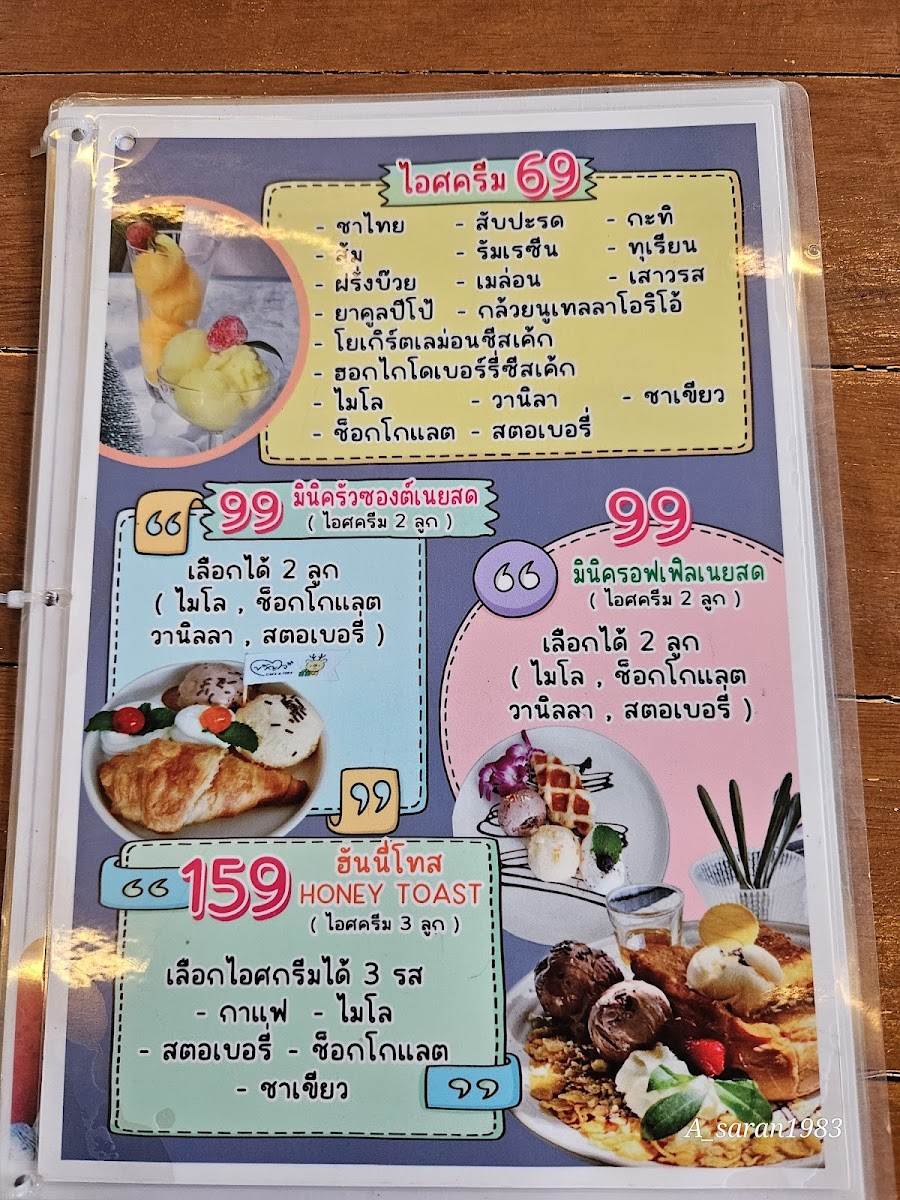 ไอศครีม 69
- ชาไทย - สับปะรด - กะทิ
- ส้ม - รัมเรซิ่น - ทุเรียน
- ฝรั่งบ๊วย - เมล่อน - เสาวรส
- ยาคูลปีโป้ - กล้วยนูเทลลาโอริโอ้
- โยเกิร์ตเลม่อนชีสเค้ก
- ฮอกไกโดเบอร์รี่ชีสเค้ก
- ไมโล - วานิลา - ชาเขียว
- ช็อกโกแลต - สตอเบอรี่
99 มินิครัวซองต์เนยสด
( ไอศครีม 2 ลูก )
เลือกได้ 2 ลูก
( ไมโล , ช็อกโกแลต
วานิลลา , สตอเบอรี่ )
99
มินิครอฟเฟิลเนยสด
( ไอศครีม 2 ลูก )
เลือกได้ 2 ลูก
( ไมโล , ช็อกโกแลต
วานิลลา , สตอเบอรี่ )
159 ฮันนี่โทส
HONEY TOAST
( ไอศครีม 3 ลูก )
เลือกไอศกรีมได้ 3 รส
- กาแฟ - ไมโล
- สตอเบอรี่ - ช็อกโกแลต
- ชาเขียว
A_saran1983